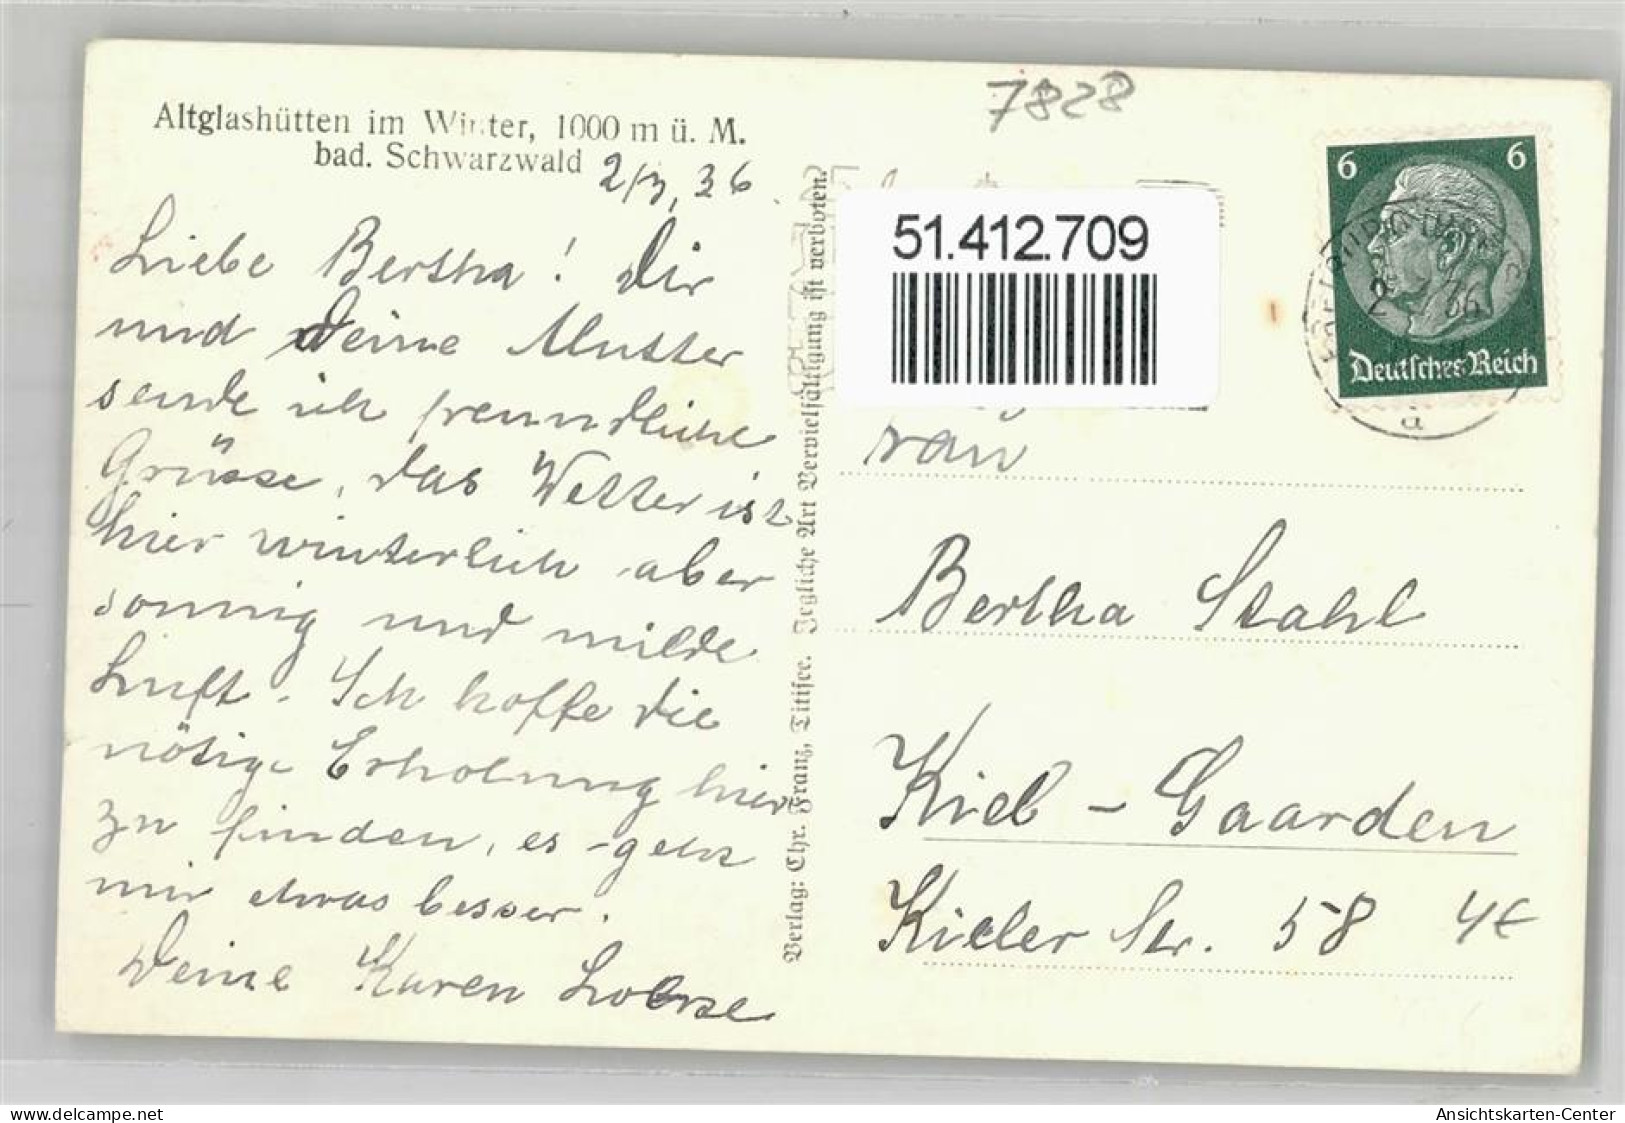 Altglashütten im Winter, 1000 m ü. M.
bad. Schwarzwald
2/3, 36.
Liebe Bertha! Dir
und Deine Mutter
sende ich freundliche
Grüsse, das Wetter ist
hier winterlich aber
sonnig und milde
Luft. Ich hoffe die
nötige Erholung hier
zu finden, es geht
mir etwas besser.
Deine Karen
Verlag: Chr. Franz, Titisee. Jegliche Art Vervielfältigung ist verboten.
7828
51.412.709
6 6
2 36
Deutsches Reich
a
rau
Bertha Stahl
Kiel - Gaarden
Kieler Str. 58
4€
delcampe.net
Ansichtskarten-Center